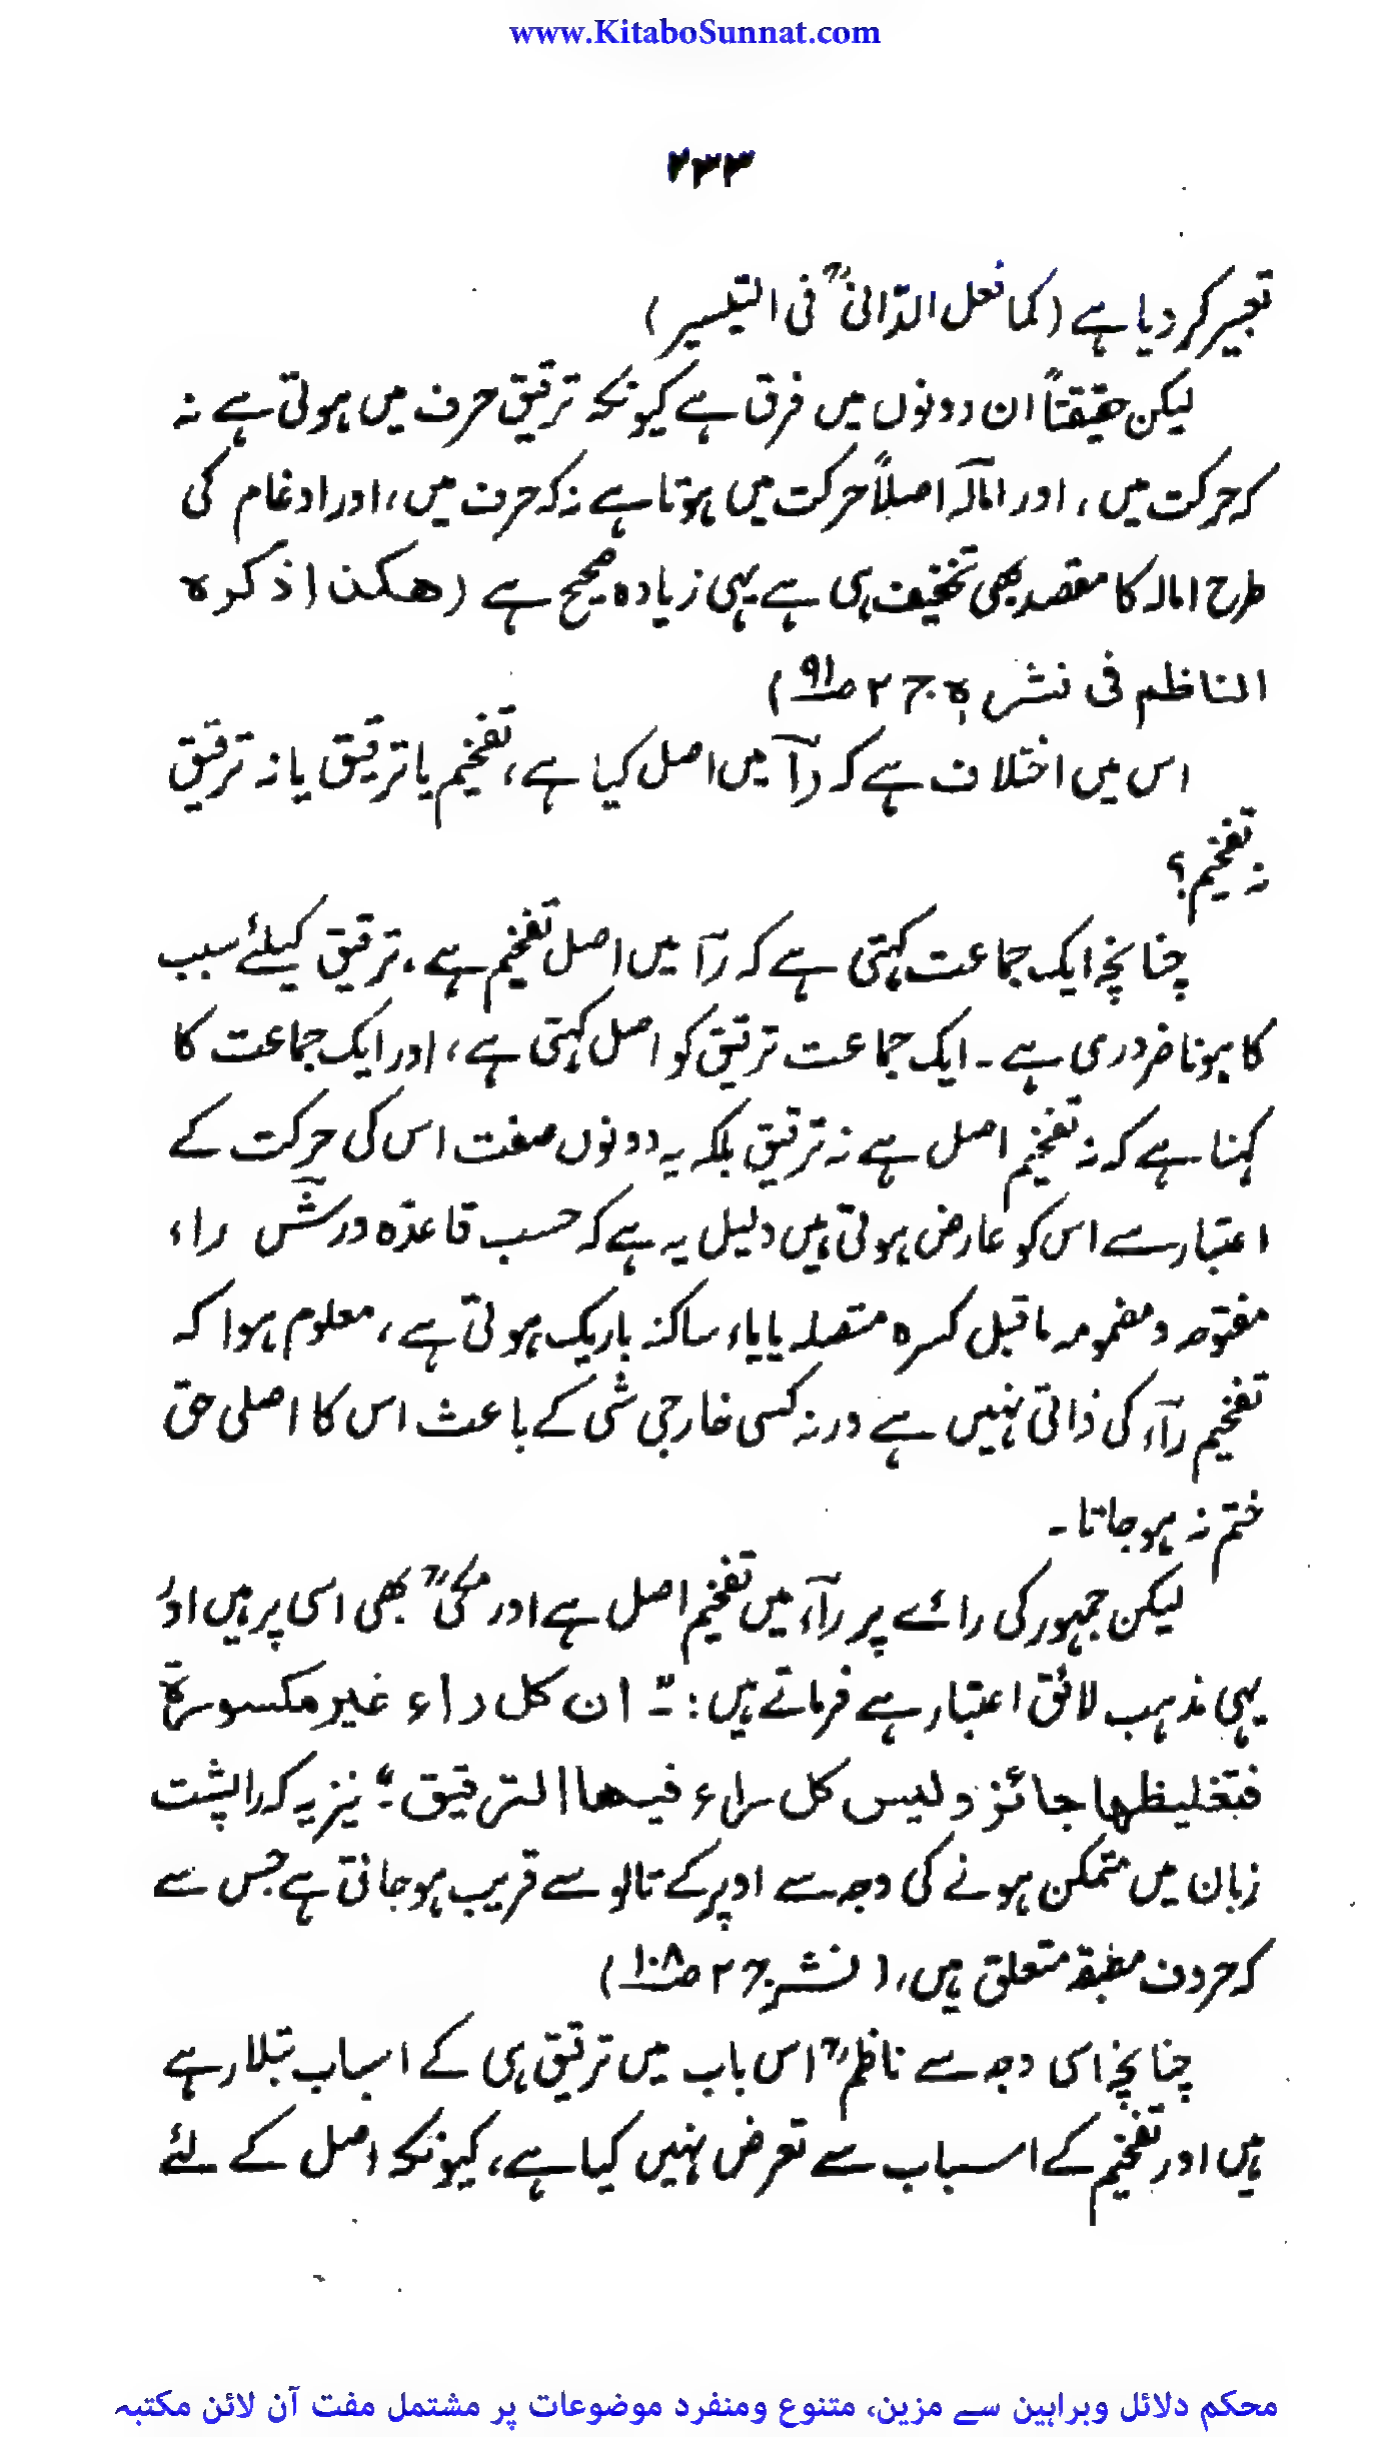 www.KitaboSunnat.com
۲۳۳
تعبیر کر دیا ہے (کما فعل الدّانیؒ فی التیسیر)
لیکن حقیقتاً ان دونوں میں فرق ہے کیونکہ ترقیق حرف میں ہوتی ہے نہ
کہ حرکت میں، اور امالہ اصلاً حرکت میں ہوتا ہے نہ کہ حرف میں، اور ادغام کی
طرح امالہ کا مقصد بھی تخفیف ہی ہے یہی زیادہ صحیح ہے (ھکذا ذکرہ
الناظم فی نشرہ ج ۲ ص ۹۱)
اس میں اختلاف ہے کہ رآ میں اصل کیا ہے، تفخیم یا ترقیق یا نہ ترقیق
نہ تفخیم؟
چنانچہ ایک جماعت کہتی ہے کہ رآ میں اصل تفخیم ہے، ترقیق کیلئے سبب
کا ہونا ضروری ہے۔ ایک جماعت ترقیق کو اصل کہتی ہے، اور ایک جماعت کا
کہنا ہے کہ نہ تفخیم اصل ہے نہ ترقیق بلکہ یہ دونوں صفت اس کی حرکت کے
اعتبار سے اس کو عارض ہوتی ہیں دلیل یہ ہے کہ حسب قاعدہ ورشؒ راء
مفتوحہ و مضمومہ ماقبل کسرہ متصلہ یا یاء ساکنہ باریک ہوتی ہے، معلوم ہوا کہ
تفخیم رآء کی ذاتی نہیں ہے ورنہ کسی خارجی شی کے باعث اس کا اصلی حق
ختم نہ ہو جاتا۔
لیکن جمہور کی رائے پر رآء میں تفخیم اصل ہے اور مکیؒ بھی اسی پر ہیں اور
یہی مذہب لائق اعتبار ہے فرماتے ہیں: ۔" ان کل راء غیر مکسورۃ
فتغلیظها جائز ولیس کل راء فیها الترقیق"۔ نیز یہ کہ را پشت
زبان میں متمکن ہونے کی وجہ سے اوپر کے تالو سے قریب ہو جاتی ہے جس سے
کہ حروف مطبقہ متعلق ہیں، (نشر ج ۲ ص ۱۰۸)
چنانچہ اسی وجہ سے ناظمؒ اس باب میں ترقیق ہی کے اسباب بتلا رہے
ہیں اور تفخیم کے اسباب سے تعرض نہیں کیا ہے، کیونکہ اصل کے لئے
محکم دلائل وبراہین سے مزین، متنوع ومنفرد موضوعات پر مشتمل مفت آن لائن مکتبہ